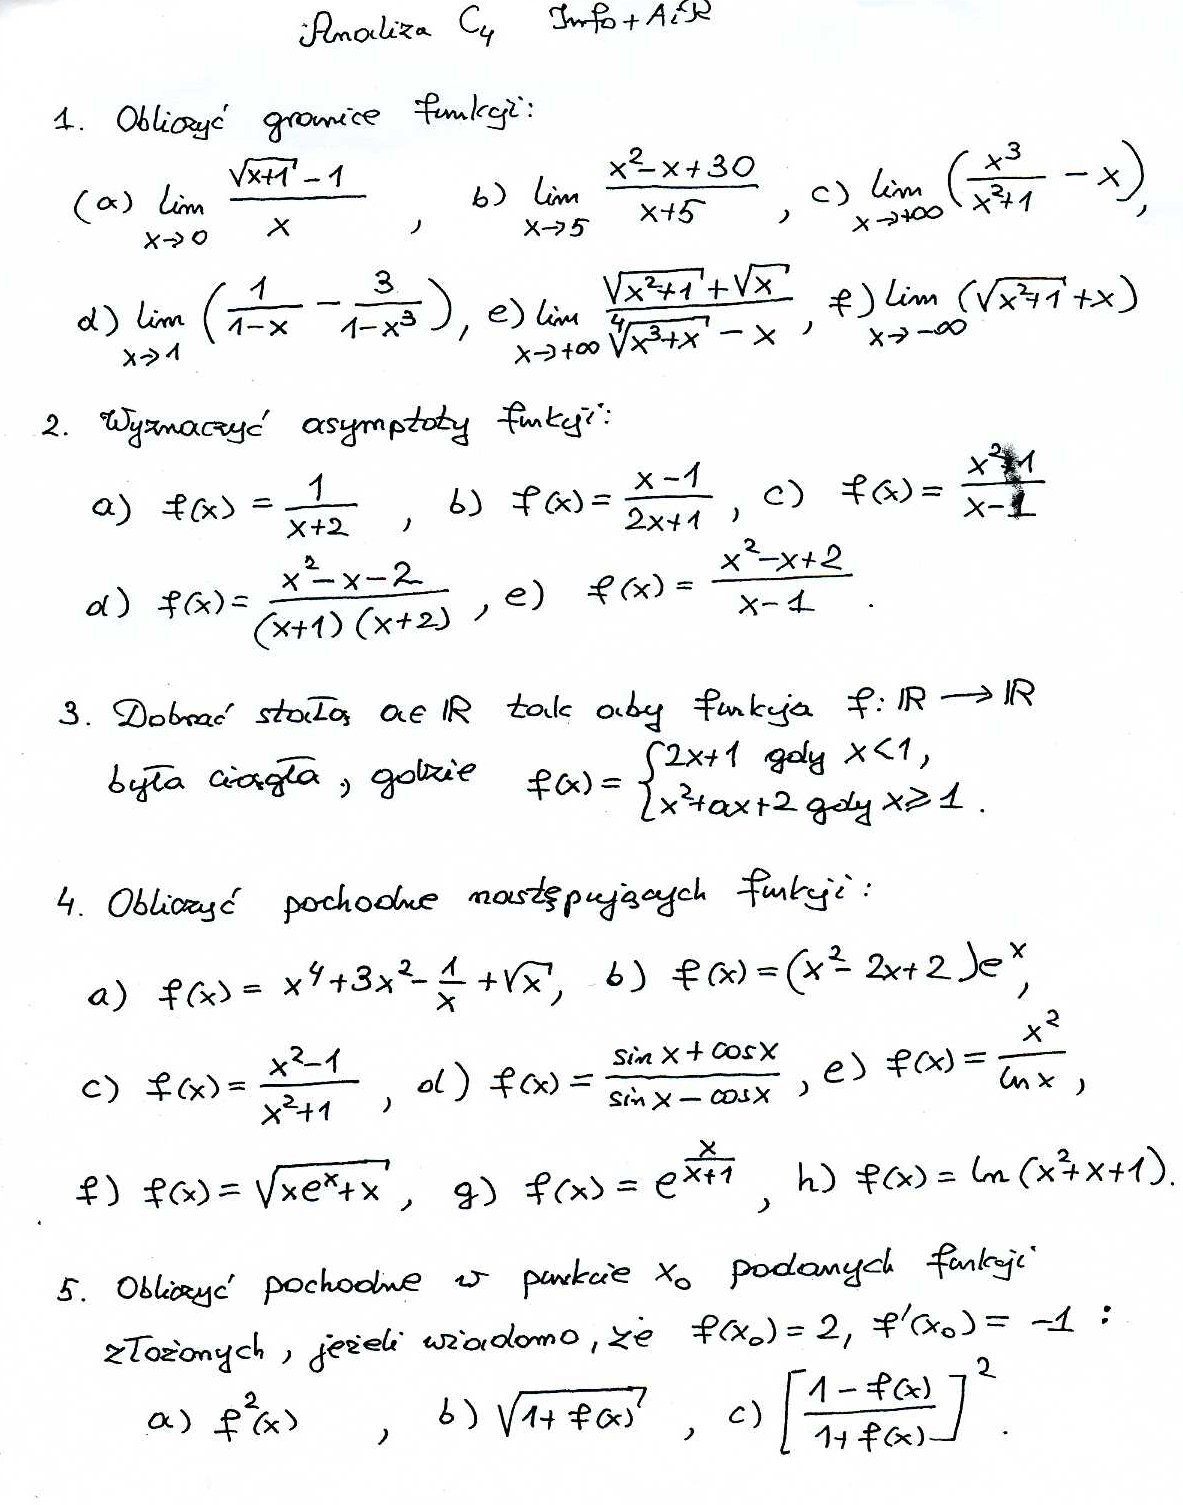 Analiza C₄ Info + AiR
1. Obliczyć granice funkcji:
(a) lim_{x→0} (√(x+1) - 1)/x , b) lim_{x→5} (x² - x + 30)/(x+5) , c) lim_{x→+∞} (x³/(x²+1) - x),
d) lim_{x→1} (1/(1-x) - 3/(1-x³)), e) lim_{x→+∞} (√(x²+1) + √x)/(⁴√(x³+x) - x) , f) lim_{x→-∞} (√(x²+1) + x)
2. Wyznaczyć asymptoty funkcji:
a) f(x) = 1/(x+2) , b) f(x) = (x-1)/(2x+1) , c) f(x) = /(x-1)
d) f(x) = (x² - x - 2)/((x+1)(x+2)) , e) f(x) = (x² - x + 2)/(x-1) .
3. Dobrać stałą a∈ℝ tak aby funkcja f: ℝ → ℝ
była ciągła, gdzie f(x) = { 2x+1 gdy x<1,
x²+ax+2 gdy x⩾1 .
4. Obliczyć pochodne następujących funkcji:
a) f(x) = x⁴ + 3x² - 1/x + √x, b) f(x) = (x² - 2x + 2)eˣ,
c) f(x) = (x²-1)/(x²+1) , d) f(x) = (sin x + cos x)/(sin x - cos x) , e) f(x) = x²/ln x ,
f) f(x) = √(xeˣ+x) , g) f(x) = e^{x/(x+1)} , h) f(x) = ln (x²+x+1).
5. Obliczyć pochodne w punkcie x₀ podanych funkcji
złożonych, jeżeli wiadomo, że f(x₀) = 2, f'(x₀) = -1 :
a) f²(x) , b) √(1+f(x)) , c) [(1 - f(x))/(1 + f(x))]² .